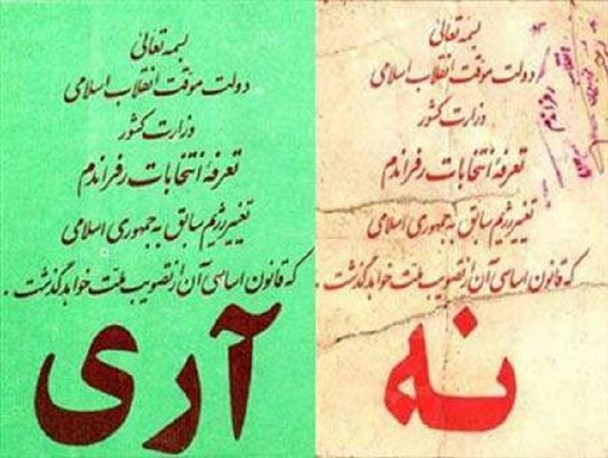 بسمه تعالی
دولت موقت انقلاب اسلامی
وزارت کشور
تعرفهٔ انتخابات رفراندم
تغییر رژیم سابق به جمهوری اسلامی
که قانون اساسی آن از تصویب ملت خواهد گذشت .
نه
رفراندم
بسمه تعالی
دولت موقت انقلاب اسلامی
وزارت کشور
تعرفهٔ انتخابات رفراندم
تغییر رژیم سابق به جمهوری اسلامی
که قانون اساسی آن از تصویب ملت خواهد گذشت .
آری